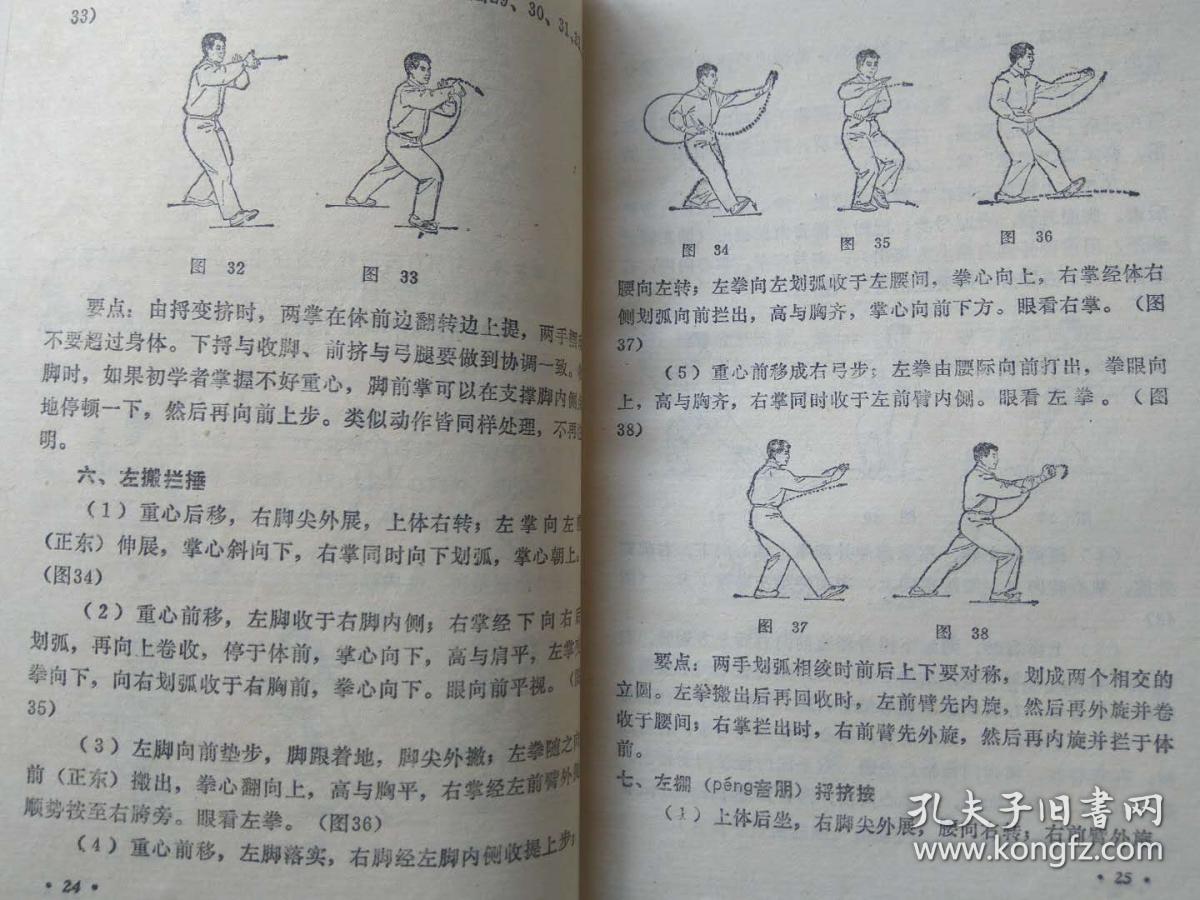 33)
29、30、31、32
图 32
图 33
要点：由捋变挤时，两掌在体前边翻转边上提，两手
不要超过身体。下捋与收脚、前挤与弓腿要做到协调一致。
脚时，如果初学者掌握不好重心，脚前掌可以在支撑脚内侧
地停顿一下，然后再向前上步。类似动作皆同样处理，不再
明。
六、左搬拦捶
（1）重心后移，右脚尖外展，上体右转；左掌向左
（正东）伸展，掌心斜向下，右掌同时向下划弧，掌心朝上。
（图34）
（2）重心前移，左脚收于右脚内侧；右掌经下向右后
划弧，再向上卷收，停于体前，掌心向下，高与肩平，左掌
拳向下，向右划弧收于右胸前，拳心向下。眼向前平视。
35）
（3）左脚向前垫步，脚跟着地，脚尖外撇；左拳随之向
前（正东）搬出，拳心翻向上，高与胸平，右掌经左前臂外侧
顺势按至右胯旁。眼看左拳。（图36）
（4）重心前移，左脚落实，右脚经左脚内侧收提上步；
• 24 •
图 34
图 35
图 36
腰向左转；左拳向左划弧收于左腰间，拳心向上，右掌经体右
侧划弧向前拦出，高与胸齐，掌心向前下方。眼看右掌。（图
37）
（5）重心前移成右弓步；左拳由腰际向前打出，拳眼向
上，高与胸齐，右掌同时收于左前臂内侧。眼看左拳。（图
38）
图 37
图 38
要点：两手划弧相绞时前后上下要对称，划成两个相交的
立圆。左拳搬出后再回收时，左前臂先内旋，然后再外旋并卷
收于腰间；右掌拦出时，右前臂先外旋，然后再内旋并拦于体
前。
七、左掤（péng音朋）捋挤按
（1）上体后坐，右脚尖外展，腰向右转；右前臂外旋，
• 25 •
孔夫子旧书网
www.kongfz.com